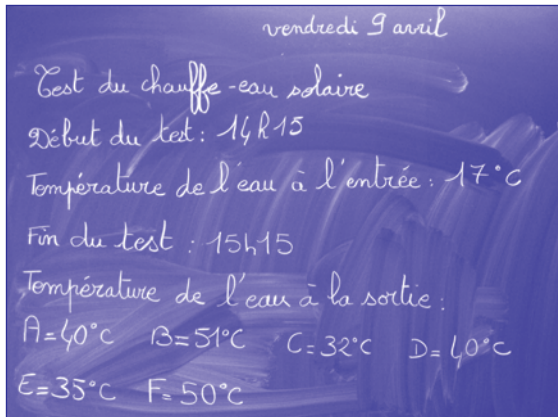 vendredi 9 avril
Test du chauffe-eau solaire
Début du test : 14h15
Température de l'eau à l'entrée : 17°C
Fin du test : 15h15
Température de l'eau à la sortie :
A=40°C B=51°C C=32°C D=40°C
E=35°C F=50°C